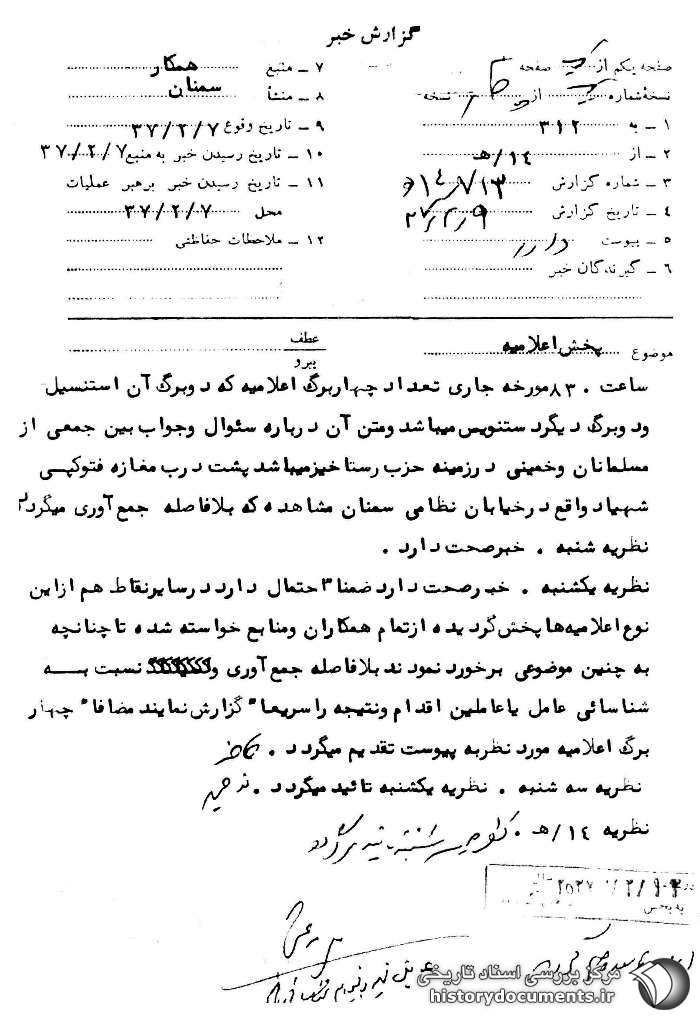 گزارش خبر
صفحه یکم از یک صفحه
نسخهٔ شماره از نسخه
۱ ـ به ۳۱۲
۲ ـ از ۱۴/هـ
۳ ـ شماره گزارش
۴ ـ تاریخ گزارش
۵ ـ پیوست دارد
۶ ـ گیرندگان خبر
۷ ـ منبع همکار
۸ ـ منشأ سمنان
۹ ـ تاریخ وقوع ۳۷/۲/۷
۱۰ ـ تاریخ رسیدن خبر به منبع ۳۷/۲/۷
۱۱ ـ تاریخ رسیدن خبر برهبر عملیات
محل ۳۷/۲/۷
۱۲ ـ ملاحظات حفاظتی
موضوع پخش اعلامیه
عطف
پیرو
ساعت ۸۳۰ مورخه جاری تعداد چهاربرگ اعلامیه که دوبرگ آن استنسیل
ودوبرگ دیگردستنویس میباشد ومتن آن درباره سئوال وجواب بین جمعی از
مسلمانان وخمینی درزمینه حزب رستاخیزمیباشد پشت درب مغازه فتوکپی
شهیاد واقع درخیابان نظامی سمنان مشاهده که بلافاصله جمع آوری میگردد
نظریه شنبه . خبرصحت دارد .
نظریه یکشنبه . خبرصحت دارد ضمنا" احتمال دارد درسایرنقاط هم ازاین
نوع اعلامیه‌ها پخش گردیده ازتمام همکاران ومنابع خواسته شده تا چنانچه
به چنین موضوعی برخورد نمودند بلافاصله جمع آوری و نسبت به
شناسائی عامل یاعاملین اقدام ونتیجه را سریعا" گزارش نمایند مضافا" چهار
برگ اعلامیه مورد نظربه پیوست تقدیم میگردد .
نظریه سه شنبه . نظریه یکشنبه تائید میگردد .
نظریه ۱۴/هـ .
مرکز بررسی اسناد تاریخی
historydocuments.ir